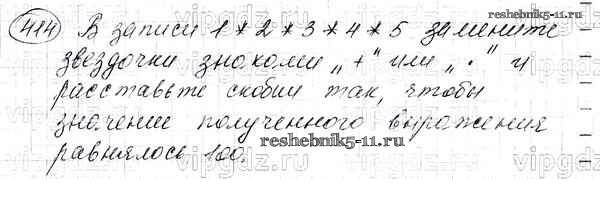 414 В записи 1 * 2 * 3 * 4 * 5 замените
звездочки знаками „ + " или „ · " и
расставьте скобки так, чтобы
значение полученного выражения
равнялось 100.
reshebnik5-11.ru
reshebnik5-11.ru
reshebnik5-11.ru
vipgdz.ru